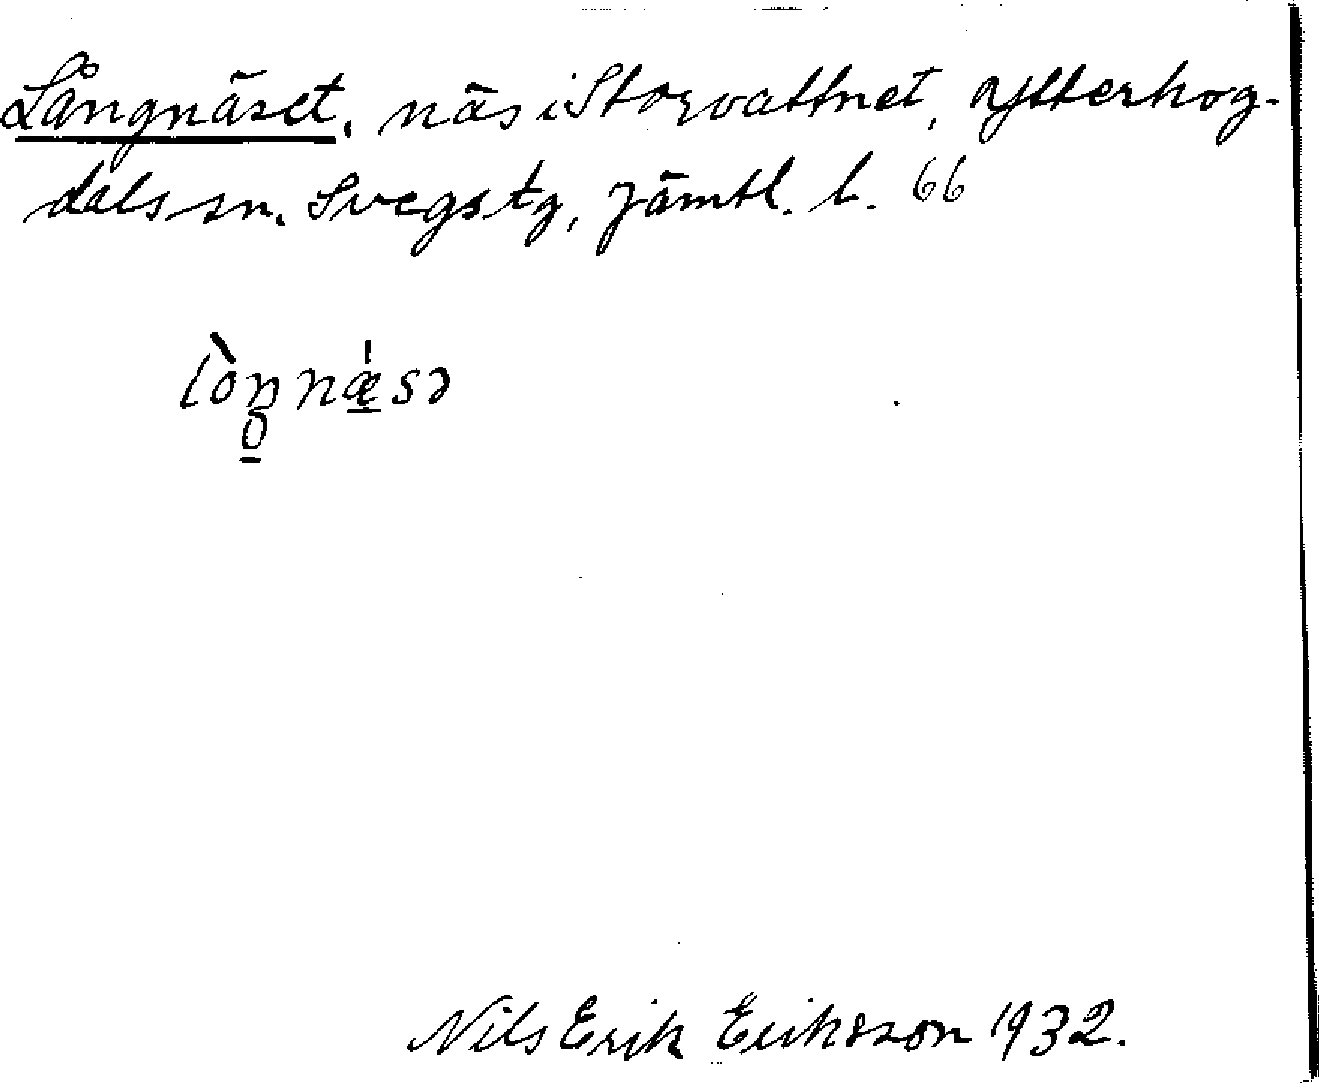 Långnäset, näs i Storvattnet, Ytterhog-
dals sn. Svegs tg, Jämtl. l. 66
lòŋnæ̱sə
o̱
Nils Erik Eriksson 1932.